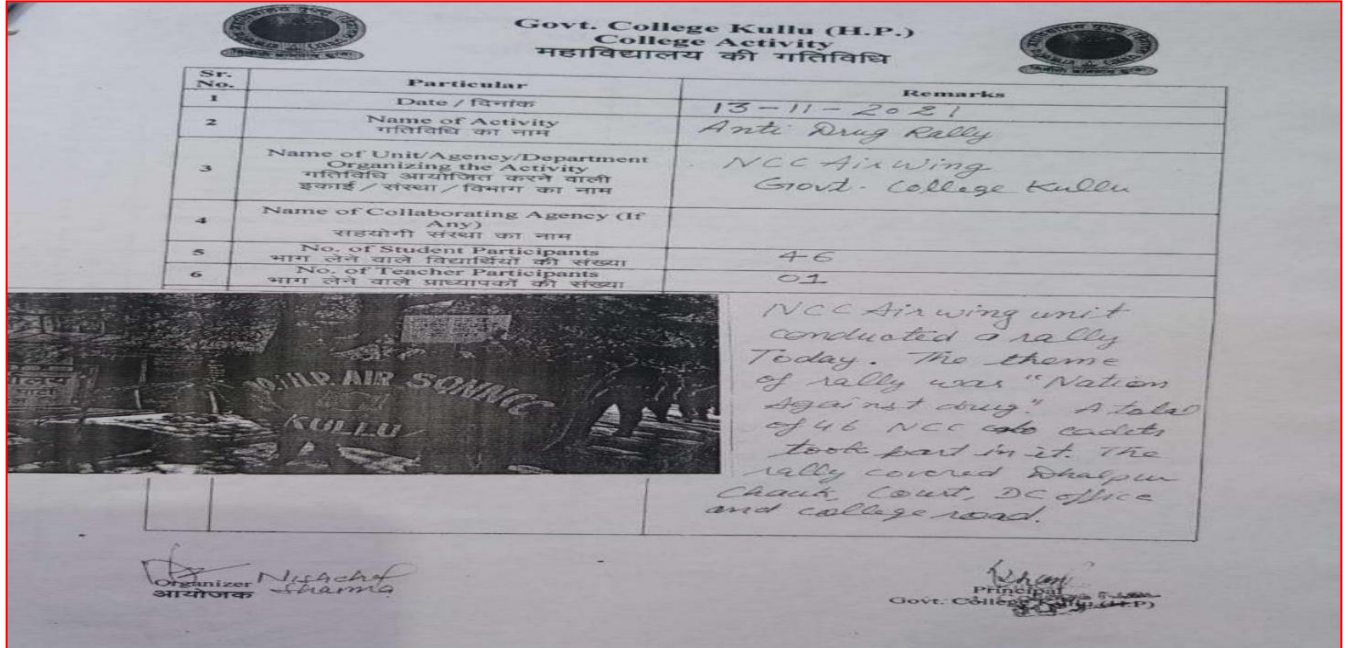 Govt. College Kullu (H.P.)
College Activity
महाविद्यालय की गतिविधि
Sr. No. Particular Remarks
1 Date / दिनांक 13-11-2021
2 Name of Activity Anti Drug Rally
गतिविधि का नाम
3 Name of Unit/Agency/Department NCC Air Wing
Organizing the Activity Govt. College Kullu
गतिविधि आयोजित करने वाली
इकाई / संस्था / विभाग का नाम
4 Name of Collaborating Agency (If
Any)
सहयोगी संस्था का नाम
5 No. of Student Participants 46
भाग लेने वाले विद्यार्थियों की संख्या
6 No. of Teacher Participants 01
भाग लेने वाले प्राध्यापकों की संख्या
HP. AIR SQNNCC
KULLU
NCC Air wing unit
conducted a rally
Today. The theme
of rally was "Nation
Against drug." A total
of 46 NCC cadets
took part in it. The
rally covered Dhalpur
Chauk, Court, DC office
and college road.
Organizer
आयोजक
Sharma
Principal
Govt. College Kullu (H.P)